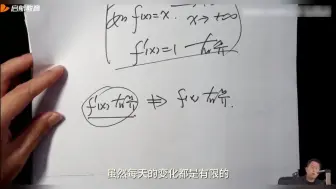 启航教育
例 f(x)=x. x→+∞
f'(x)=1 有界
f'(x) 有界 ⇏ f(x) 有界.
虽然每天的变化都是有限的